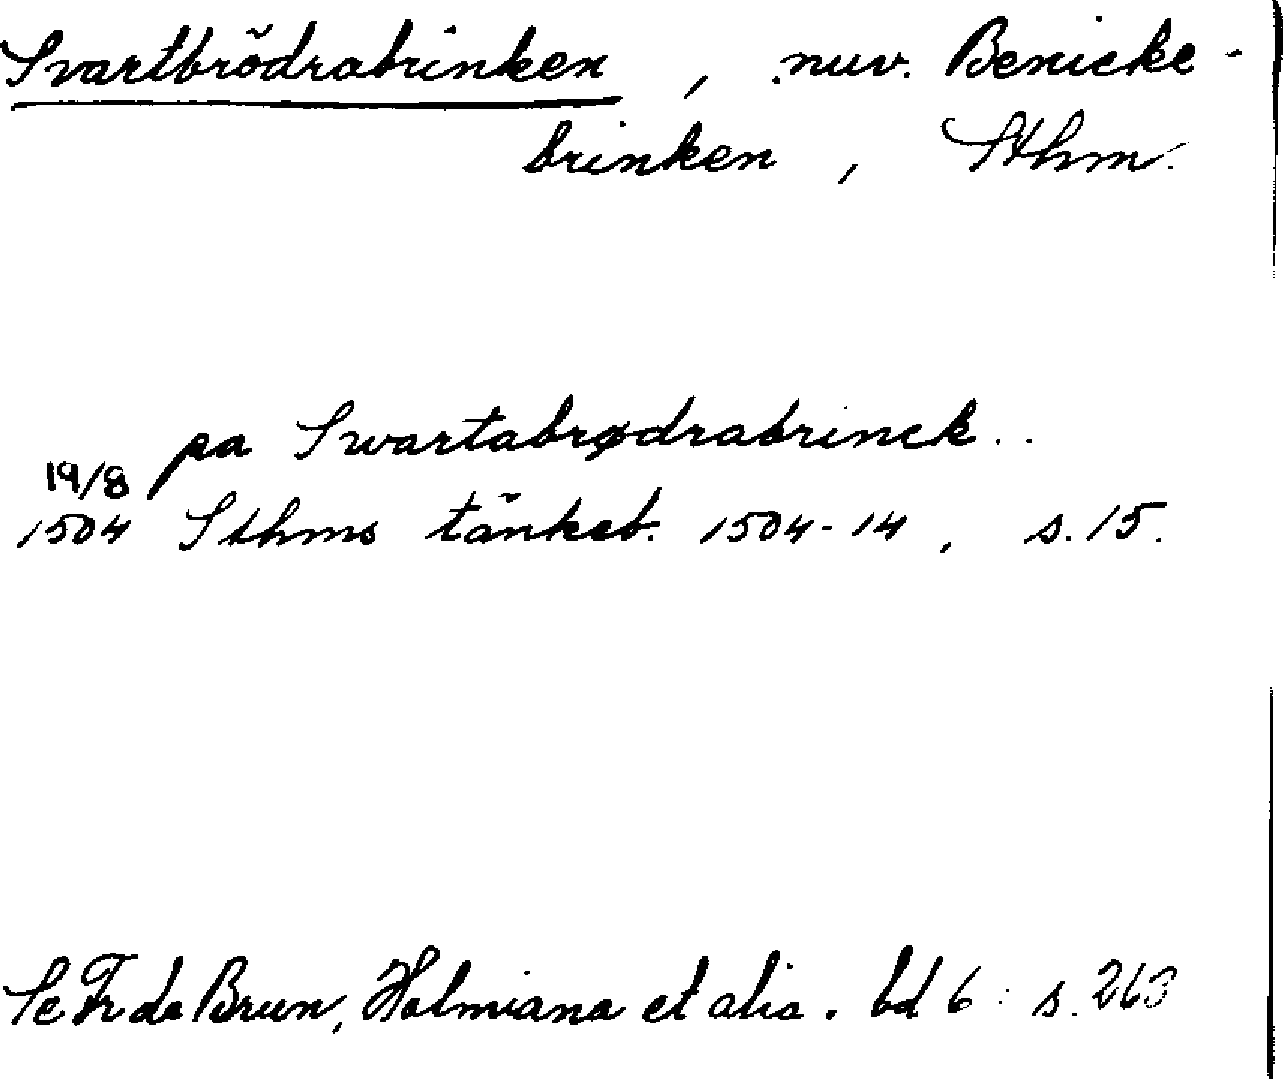 Svartbrödrabrinken, nuv. Benicke-
brinken, Sthm.
pa Swartabrødrabrinck..
19/8
1504 Sthms tänkeb. 1504-14, s. 15.
Se Fr de Brun, Holmiana et alia. bd 6: s. 263